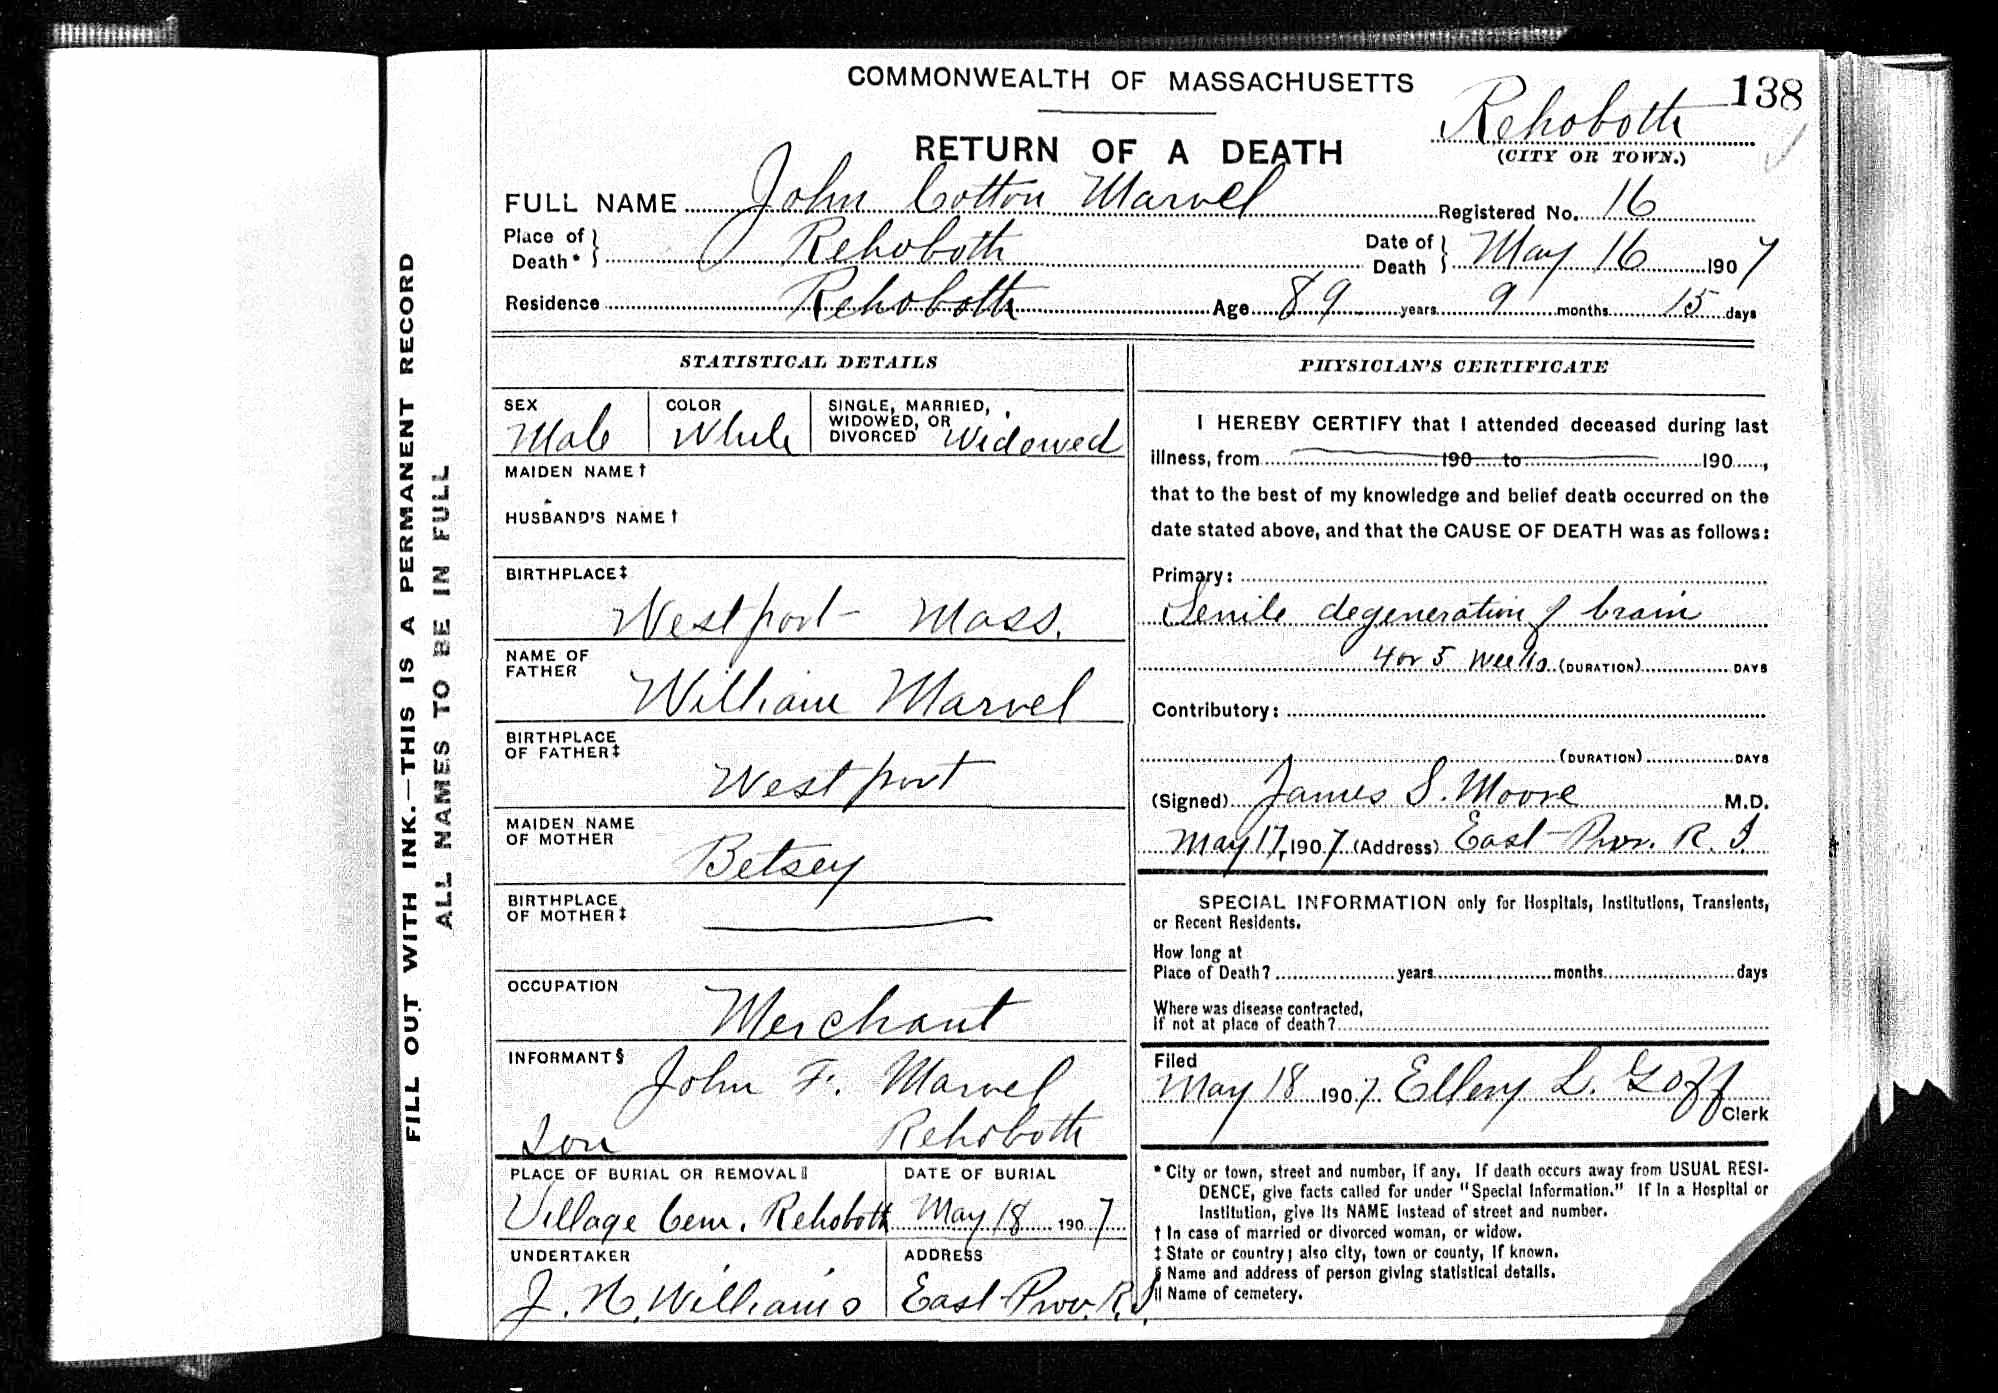 138
COMMONWEALTH OF MASSACHUSETTS
Rehoboth
(CITY OR TOWN.)
RETURN OF A DEATH
FULL NAME John Cotton Marvel Registered No. 16
Place of Death* Rehoboth Date of Death May 16 1907
Residence Rehoboth Age 89 years 9 months 15 days
FILL OUT WITH INK.—THIS IS A PERMANENT RECORD
ALL NAMES TO BE IN FULL
STATISTICAL DETAILS
SEX Male COLOR White SINGLE, MARRIED, WIDOWED, OR DIVORCED Widowed
MAIDEN NAME†
HUSBAND'S NAME†
BIRTHPLACE‡
Westport Mass.
NAME OF FATHER
William Marvel
BIRTHPLACE OF FATHER‡
Westport
MAIDEN NAME OF MOTHER
Betsey
BIRTHPLACE OF MOTHER‡
OCCUPATION
Merchant
INFORMANT§
John F. Marvel
Son Rehoboth
PLACE OF BURIAL OR REMOVAL‖ DATE OF BURIAL
Village Cem. Rehoboth May 18 1907
UNDERTAKER ADDRESS
J. N. Williams East Prov. R.I.
PHYSICIAN'S CERTIFICATE
I HEREBY CERTIFY that I attended deceased during last
illness, from 190 to 190 ,
that to the best of my knowledge and belief death occurred on the
date stated above, and that the CAUSE OF DEATH was as follows:
Primary:
Senile degeneration of brain
4 or 5 Weeks (DURATION) DAYS
Contributory:
(DURATION) DAYS
(Signed) James S. Moore M.D.
May 17, 1907 (Address) East Prov. R. I
SPECIAL INFORMATION only for Hospitals, Institutions, Transients,
or Recent Residents.
How long at
Place of Death? years months days
Where was disease contracted,
if not at place of death?
Filed
May 18 1907. Ellery L. Goff
Clerk
* City or town, street and number, if any. If death occurs away from USUAL RESI-
DENCE, give facts called for under "Special Information." If in a Hospital or
Institution, give its NAME instead of street and number.
† In case of married or divorced woman, or widow.
‡ State or country; also city, town or county, if known.
§ Name and address of person giving statistical details.
‖ Name of cemetery.